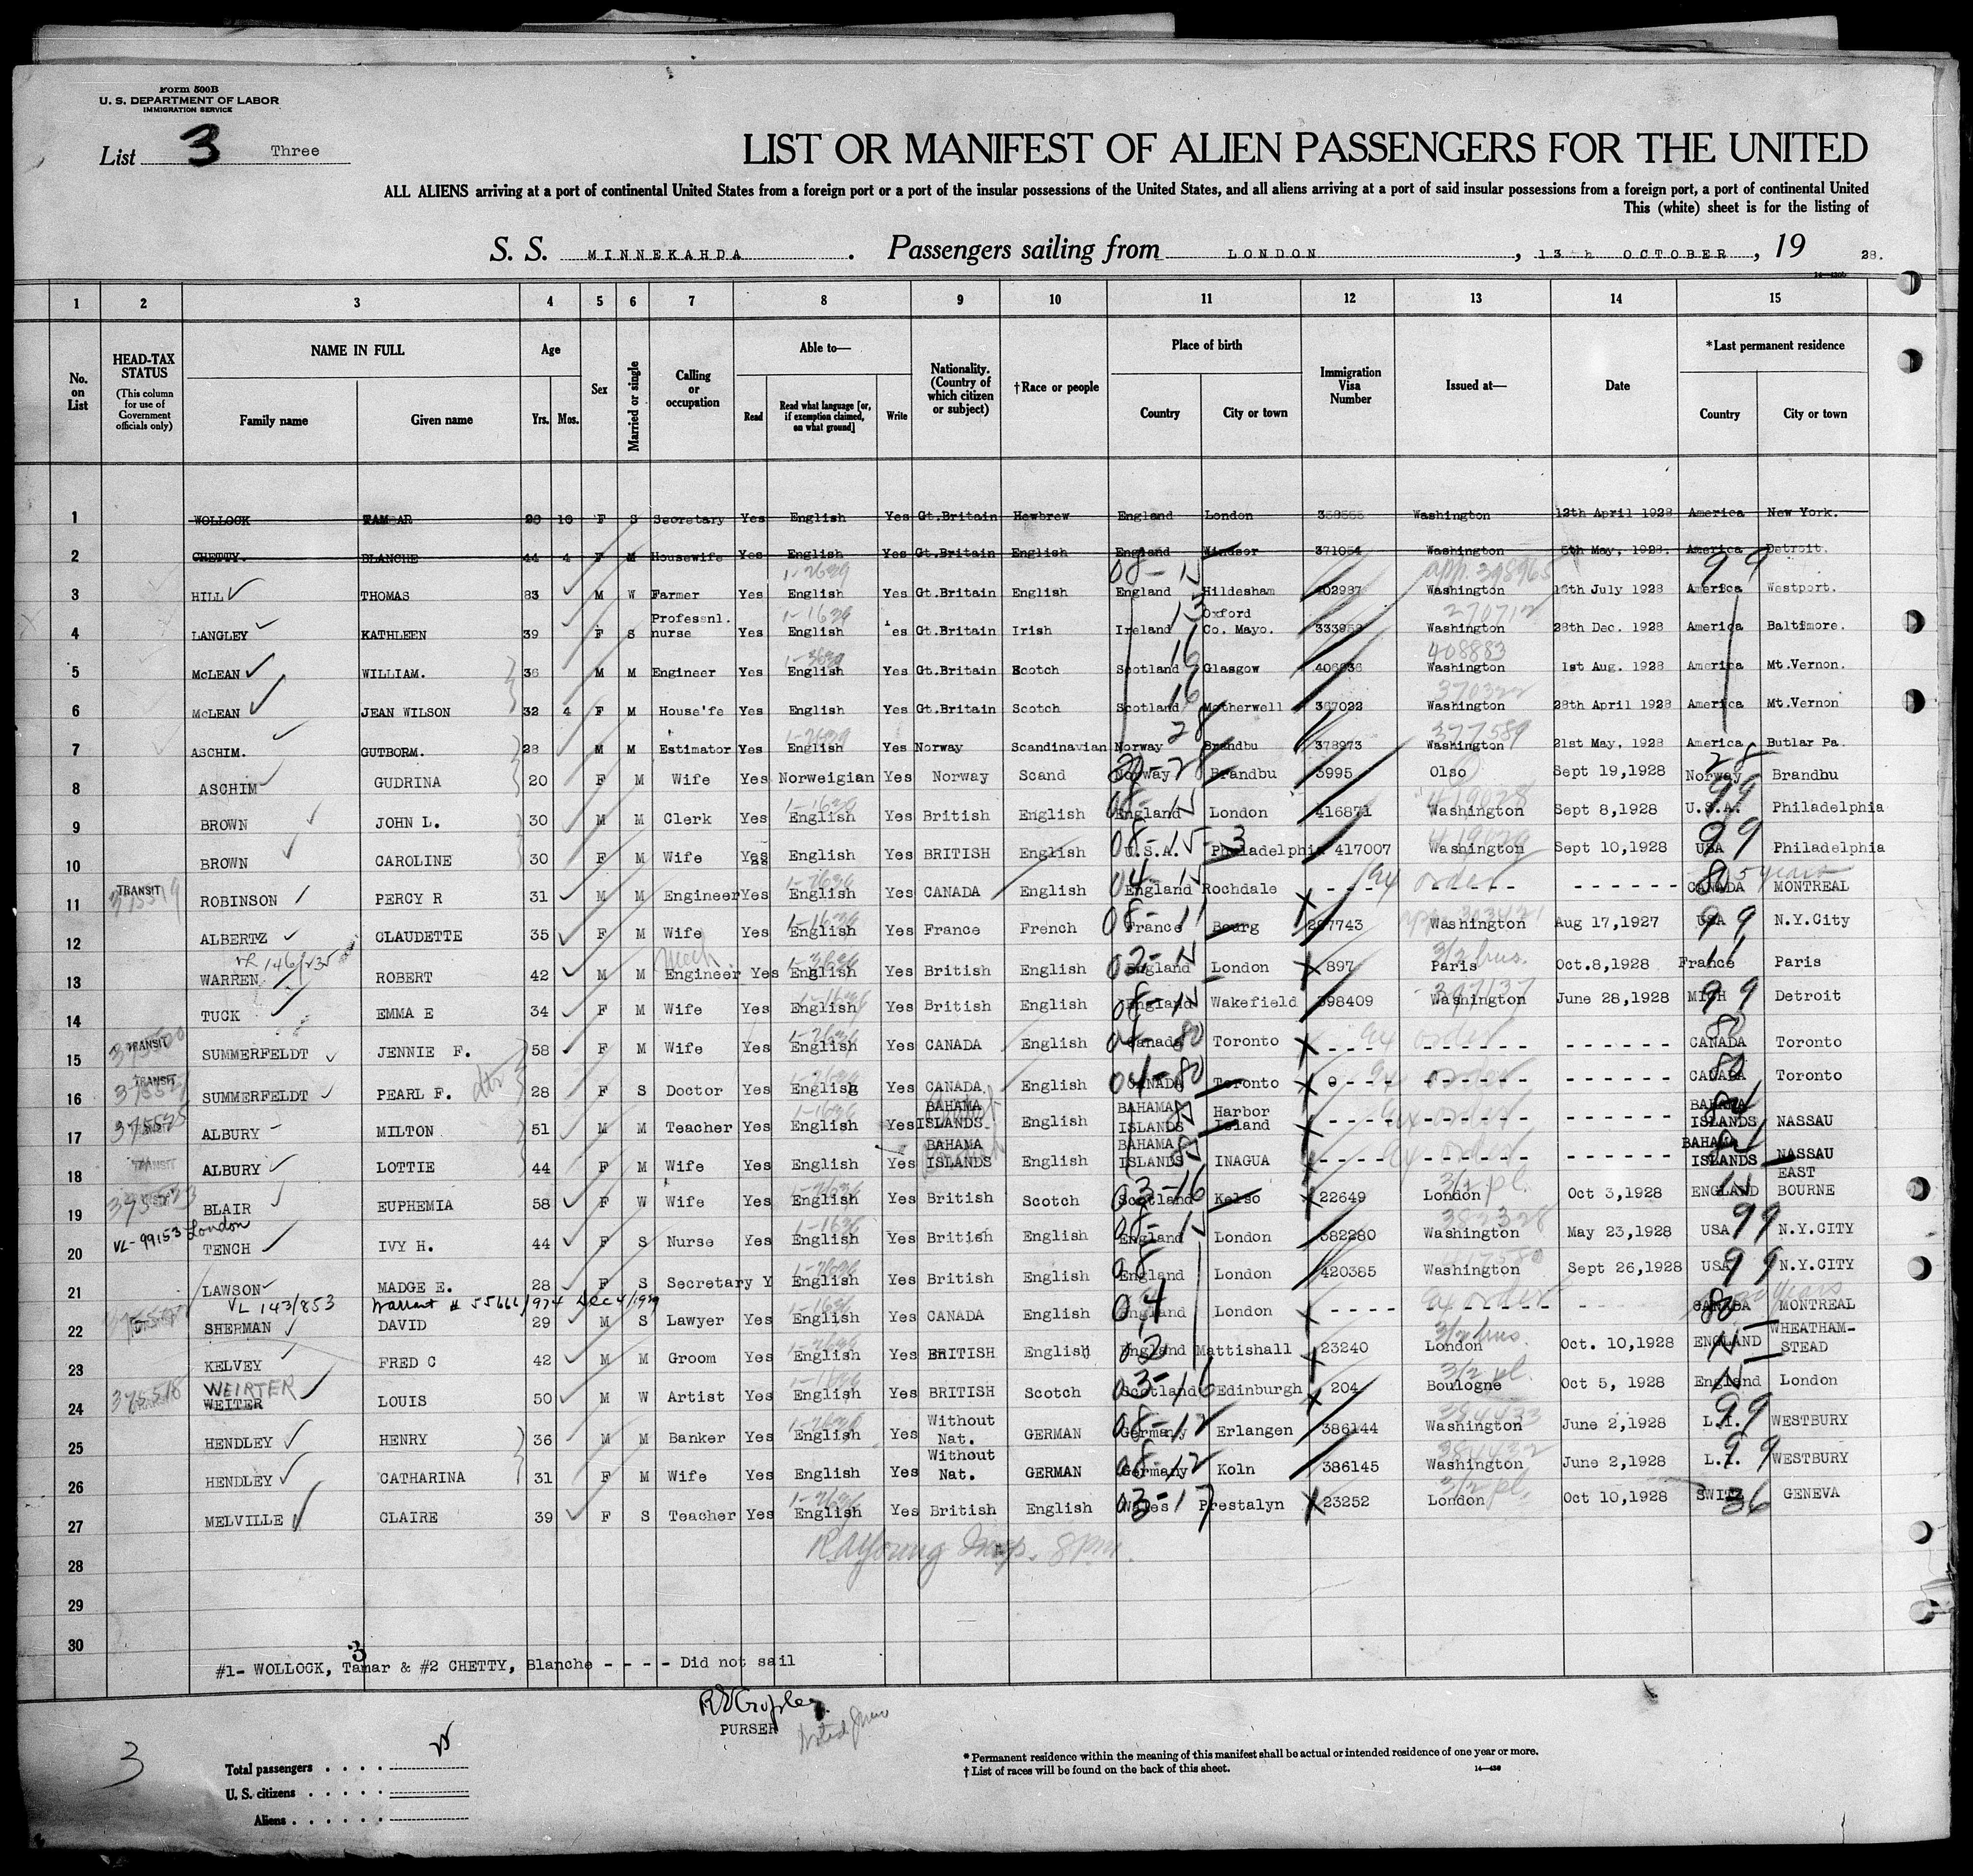 Form 500B
U. S. DEPARTMENT OF LABOR
IMMIGRATION SERVICE
List 3 Three
LIST OR MANIFEST OF ALIEN PASSENGERS FOR THE UNITED
ALL ALIENS arriving at a port of continental United States from a foreign port or a port of the insular possessions of the United States, and all aliens arriving at a port of said insular possessions from a foreign port, a port of continental United
This (white) sheet is for the listing of
S. S. MINNEKAHDA. Passengers sailing from LONDON, 13th OCTOBER, 19 28.
1 2 3 4 5 6 7 8 9 10 11 12 13 14 15
No. on List
HEAD-TAX STATUS (This column for use of Government officials only)
NAME IN FULL Family name Given name
Age Yrs. Mos.
Sex
Married or single
Calling or occupation
Able to— Read Read what language [or, if exemption claimed, on what ground] Write
Nationality. (Country of which citizen or subject)
†Race or people
Place of birth Country City or town
Immigration Visa Number
Issued at—
Date
*Last permanent residence Country City or town
1 WOLLOCK TAMAR 10 F S Secretary Yes English Yes Gt.Britain Hewbrew England London Washington 12th April 1928 America New York.
2 CHETTY. BLANCHE 44 4 F M Housewife Yes English Yes Gt.Britain English England Windsor 371054 Washington 5th May, 1928. America Detroit.
3 HILL THOMAS 83 M W Farmer Yes English Yes Gt.Britain English England Hildesham Oxford 402987 Washington 16th July 1928 America Westport.
4 LANGLEY KATHLEEN 39 F S Professnl. nurse Yes English es Gt.Britain Irish Ireland Co. Mayo. Washington 28th Dec. 1928 America Baltimore.
5 McLEAN WILLIAM. 36 M M Engineer Yes English Yes Gt.Britain Scotch Scotland Glasgow 406836 408883 Washington 1st Aug. 1928 America Mt.Vernon.
6 McLEAN JEAN WILSON 32 4 F M House'fe Yes English Yes Gt.Britain Scotch Scotland Motherwell 367022 370322 Washington 28th April 1928 America Mt.Vernon
7 ASCHIM. GUTBORM. 28 M M Estimator Yes English Yes Norway Scandinavian Norway Brandbu 378973 377589 Washington 21st May, 1928 America Butlar Pa.
8 ASCHIM GUDRINA 20 F M Wife Yes Norweigian Yes Norway Scand Norway Brandbu 3995 Olso Sept 19,1928 Norway Brandbu
9 BROWN JOHN L. 30 M M Clerk Yes English Yes British English England London 416871 Washington Sept 8,1928 U.S.A. 99 Philadelphia
10 BROWN CAROLINE 30 F M Wife Yes English Yes BRITISH English U.S.A. Philadelphia 417007 419029 Washington Sept 10,1928 USA 99 Philadelphia
11 TRANSIT ROBINSON PERCY R 31 M M Engineer Yes English Yes CANADA English England Rochdale - - - - order - - - - - - CANADA MONTREAL
12 ALBERTZ CLAUDETTE 35 F M Wife Yes English Yes France French France Bourg 297743 Washington Aug 17,1927 USA 99 N.Y.City
13 WARREN ROBERT 42 M M mech. Engineer Yes English Yes British English England London 897 3/2 bus. Paris Oct.8,1928 France Paris
14 TUCK EMMA E 34 F M Wife Yes English Yes British English England Wakefield 398409 397137 Washington June 28,1928 MICH 99 Detroit
15 TRANSIT SUMMERFELDT JENNIE F. 58 F M Wife Yes English Yes CANADA English Canada 80 Toronto - - - - order - - - - - - CANADA 80 Toronto
16 TRANSIT SUMMERFELDT PEARL F. dtr 28 F S Doctor Yes English Yes CANADA English CANADA 04-80 Toronto - - - - - - - - - - CANADA 80 Toronto
17 ALBURY MILTON 51 M M Teacher Yes English Yes BAHAMA ISLANDS English BAHAMA ISLANDS Harbor Island - - - - - - - - - - BAHAMA ISLANDS NASSAU
18 TRANSIT ALBURY LOTTIE 44 F M Wife Yes English Yes BAHAMA ISLANDS English BAHAMA ISLANDS INAGUA - - - - - - - - - - BAHAMA ISLANDS NASSAU
19 BLAIR EUPHEMIA 58 F W Wife Yes English Yes British Scotch Scotland 03-16 Kelso 22649 3/2 pl. London Oct 3,1928 ENGLAND EAST BOURNE
20 VL-99153 London TENCH IVY H. 44 F S Nurse Yes English Yes British English England London 382280 382328 Washington May 23,1928 USA 99 N.Y.CITY
21 LAWSON MADGE E. 28 F S Secretary Y English Yes British English England London 420385 Washington Sept 26,1928 USA 99 N.Y.CITY
VL 143/853 Warrant # 55666/974 Dec 4/1929
22 SHERMAN DAVID 29 M S Lawyer Yes English Yes CANADA English England 04 London - - - - order - - - - - CANADA 80 MONTREAL
23 KELVEY FRED C 42 M M Groom Yes English Yes BRITISH English England Mattishall 23240 3/2 bus. London Oct. 10,1928 ENGLAND WHEATHAM-STEAD
24 WEIRTER WEITER LOUIS 50 M W Artist Yes English Yes BRITISH Scotch Scotland 03-16 Edinburgh 204 3/2 pl. Boulogne Oct 5, 1928 England London
25 HENDLEY HENRY 36 M M Banker Yes English Yes Without Nat. GERMAN Germany 08-12 Erlangen 386144 Washington June 2,1928 L.I. 99 WESTBURY
26 HENDLEY CATHARINA 31 F M Wife Yes English Yes Without Nat. GERMAN Germany 08-12 Koln 386145 384432 Washington June 2,1928 L.I. 99 WESTBURY
27 MELVILLE CLAIRE 39 F S Teacher Yes English Yes British English Wales 03-17 Prestalyn 23252 3/2 pl. London Oct 10,1928 SWITZ 36 GENEVA
28 RAYoung Insp. 8 pm.
29
30
3
#1- WOLLOCK, Tamar & #2 CHETTY, Blanche - - - - Did not sail
PURSER
3
Total passengers . . . .
U. S. citizens . . . . .
Aliens . . . . . .
* Permanent residence within the meaning of this manifest shall be actual or intended residence of one year or more.
† List of races will be found on the back of this sheet.